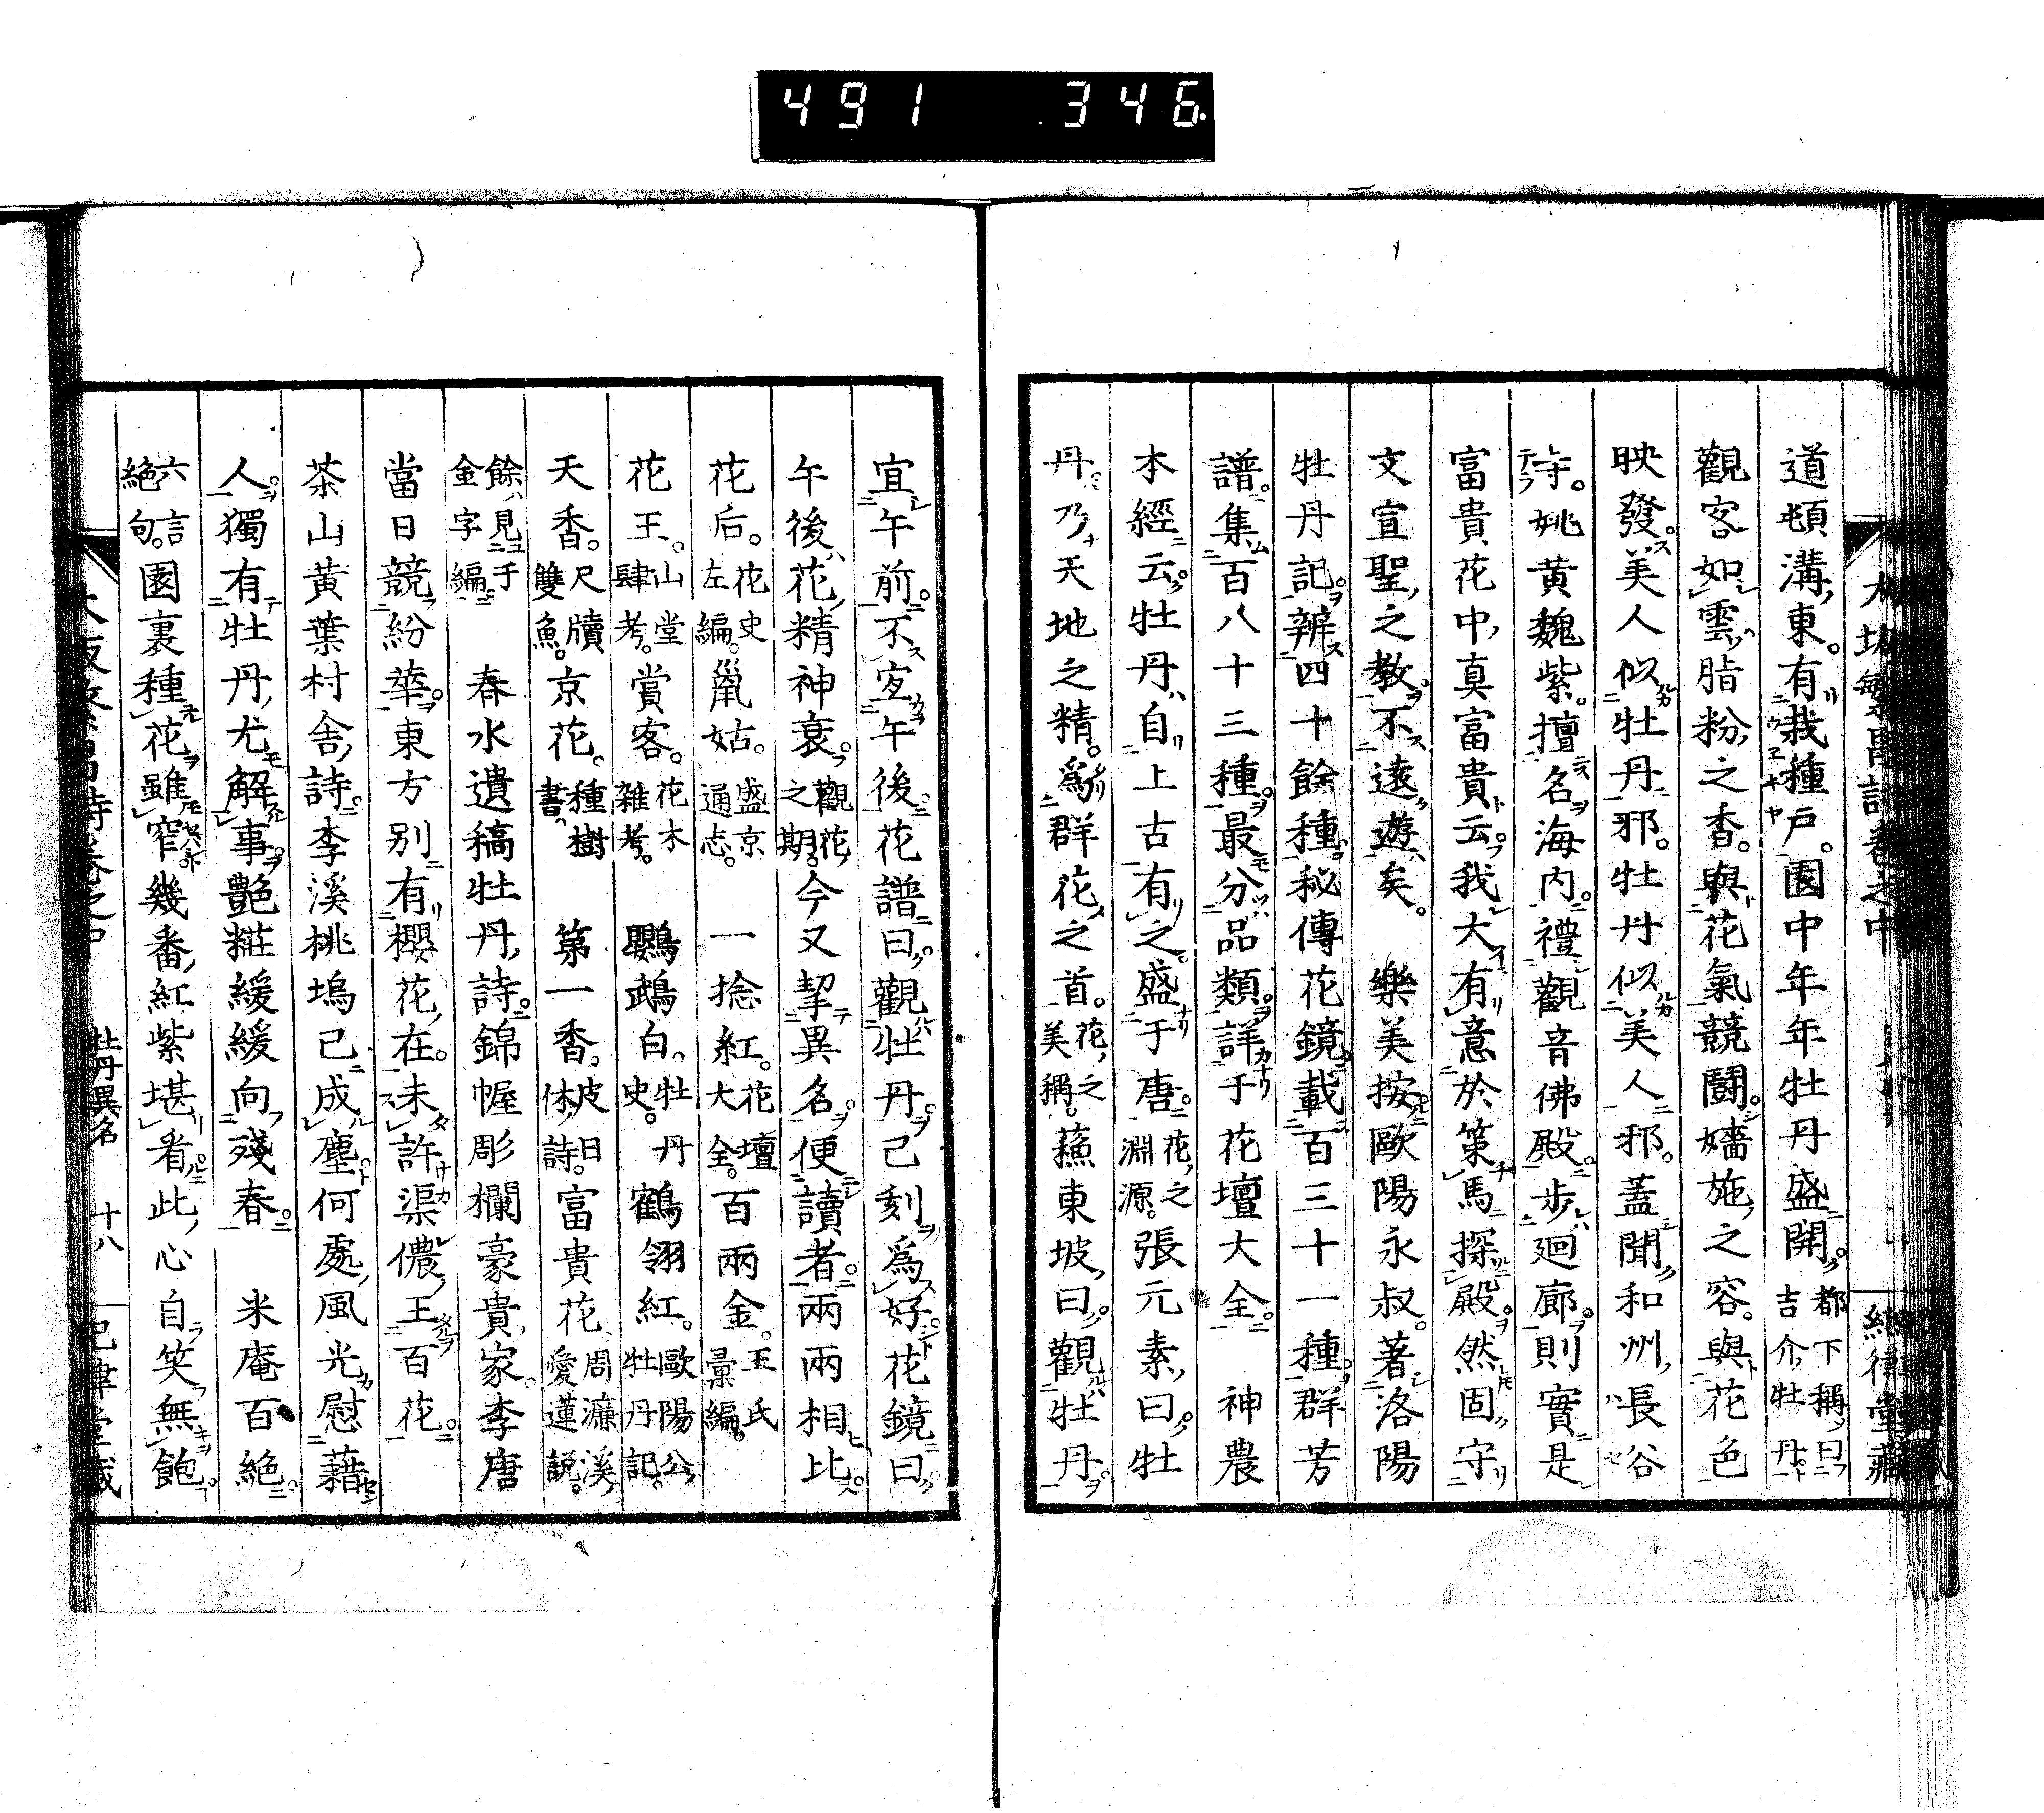 491 346
道頓溝東。有栽種戸。園中年年牡丹盛開。都下稱曰吉介牡丹
觀客如雲。脂粉之香。與花氣競鬪。嬌施之容。與花色
映發。美人似牡丹邪。牡丹似美人邪。蓋聞和州長谷
寺。姚黄魏紫。擅名海内。禮觀音佛殿。歩廻廊。則實是
富貴花中真富貴云。我大有意於策馬探殿。然固守
文宣聖之教。不遠遊矣。 樂美按歐陽永叔。著洛陽
牡丹記。辨四十餘種。秘傳花鏡載百三十一種。群芳
譜。集百八十三種。最分品類。詳于花壇大全。 神農
本經云。牡丹自上古有之。盛于唐。花之淵源。張元素曰。牡
丹乃天地之精。爲群花之首。花之美稱。蘓東坡曰。觀牡丹
宜午前。不宜午後。花譜曰。觀牡丹。己刻爲好。花鏡曰。
午後花精神衰。觀花之期。今又挈異名。便讀者。兩兩相比。
花后。花史左編。鼠姑。盛京通志。 一捻紅。花壇大全。百兩金。王氏彙編。
花王。山堂肆考。賞客。花木雜考。 鸚鵡白。牡丹史。鶴翎紅。歐陽公牡丹記。
天香。尺牘雙魚。京花。種樹書。 第一香。皮日休詩。富貴花。周濂溪愛蓮説。
餘見于金字編 春水遺稿牡丹詩。錦幄彫欄豪貴家。李唐
當日競紛華。東方別有櫻花在。未許渠儂王百花。
茶山黄葉村舎詩。李溪桃塢已成塵。何處風光慰藉
人。獨有牡丹尤解事。艶糚緩緩向殘春。 米庵百絶。
六言絶句。園裏種花雖窄。幾番紅紫堪看。此心自笑無飽。
牡丹異名 十八